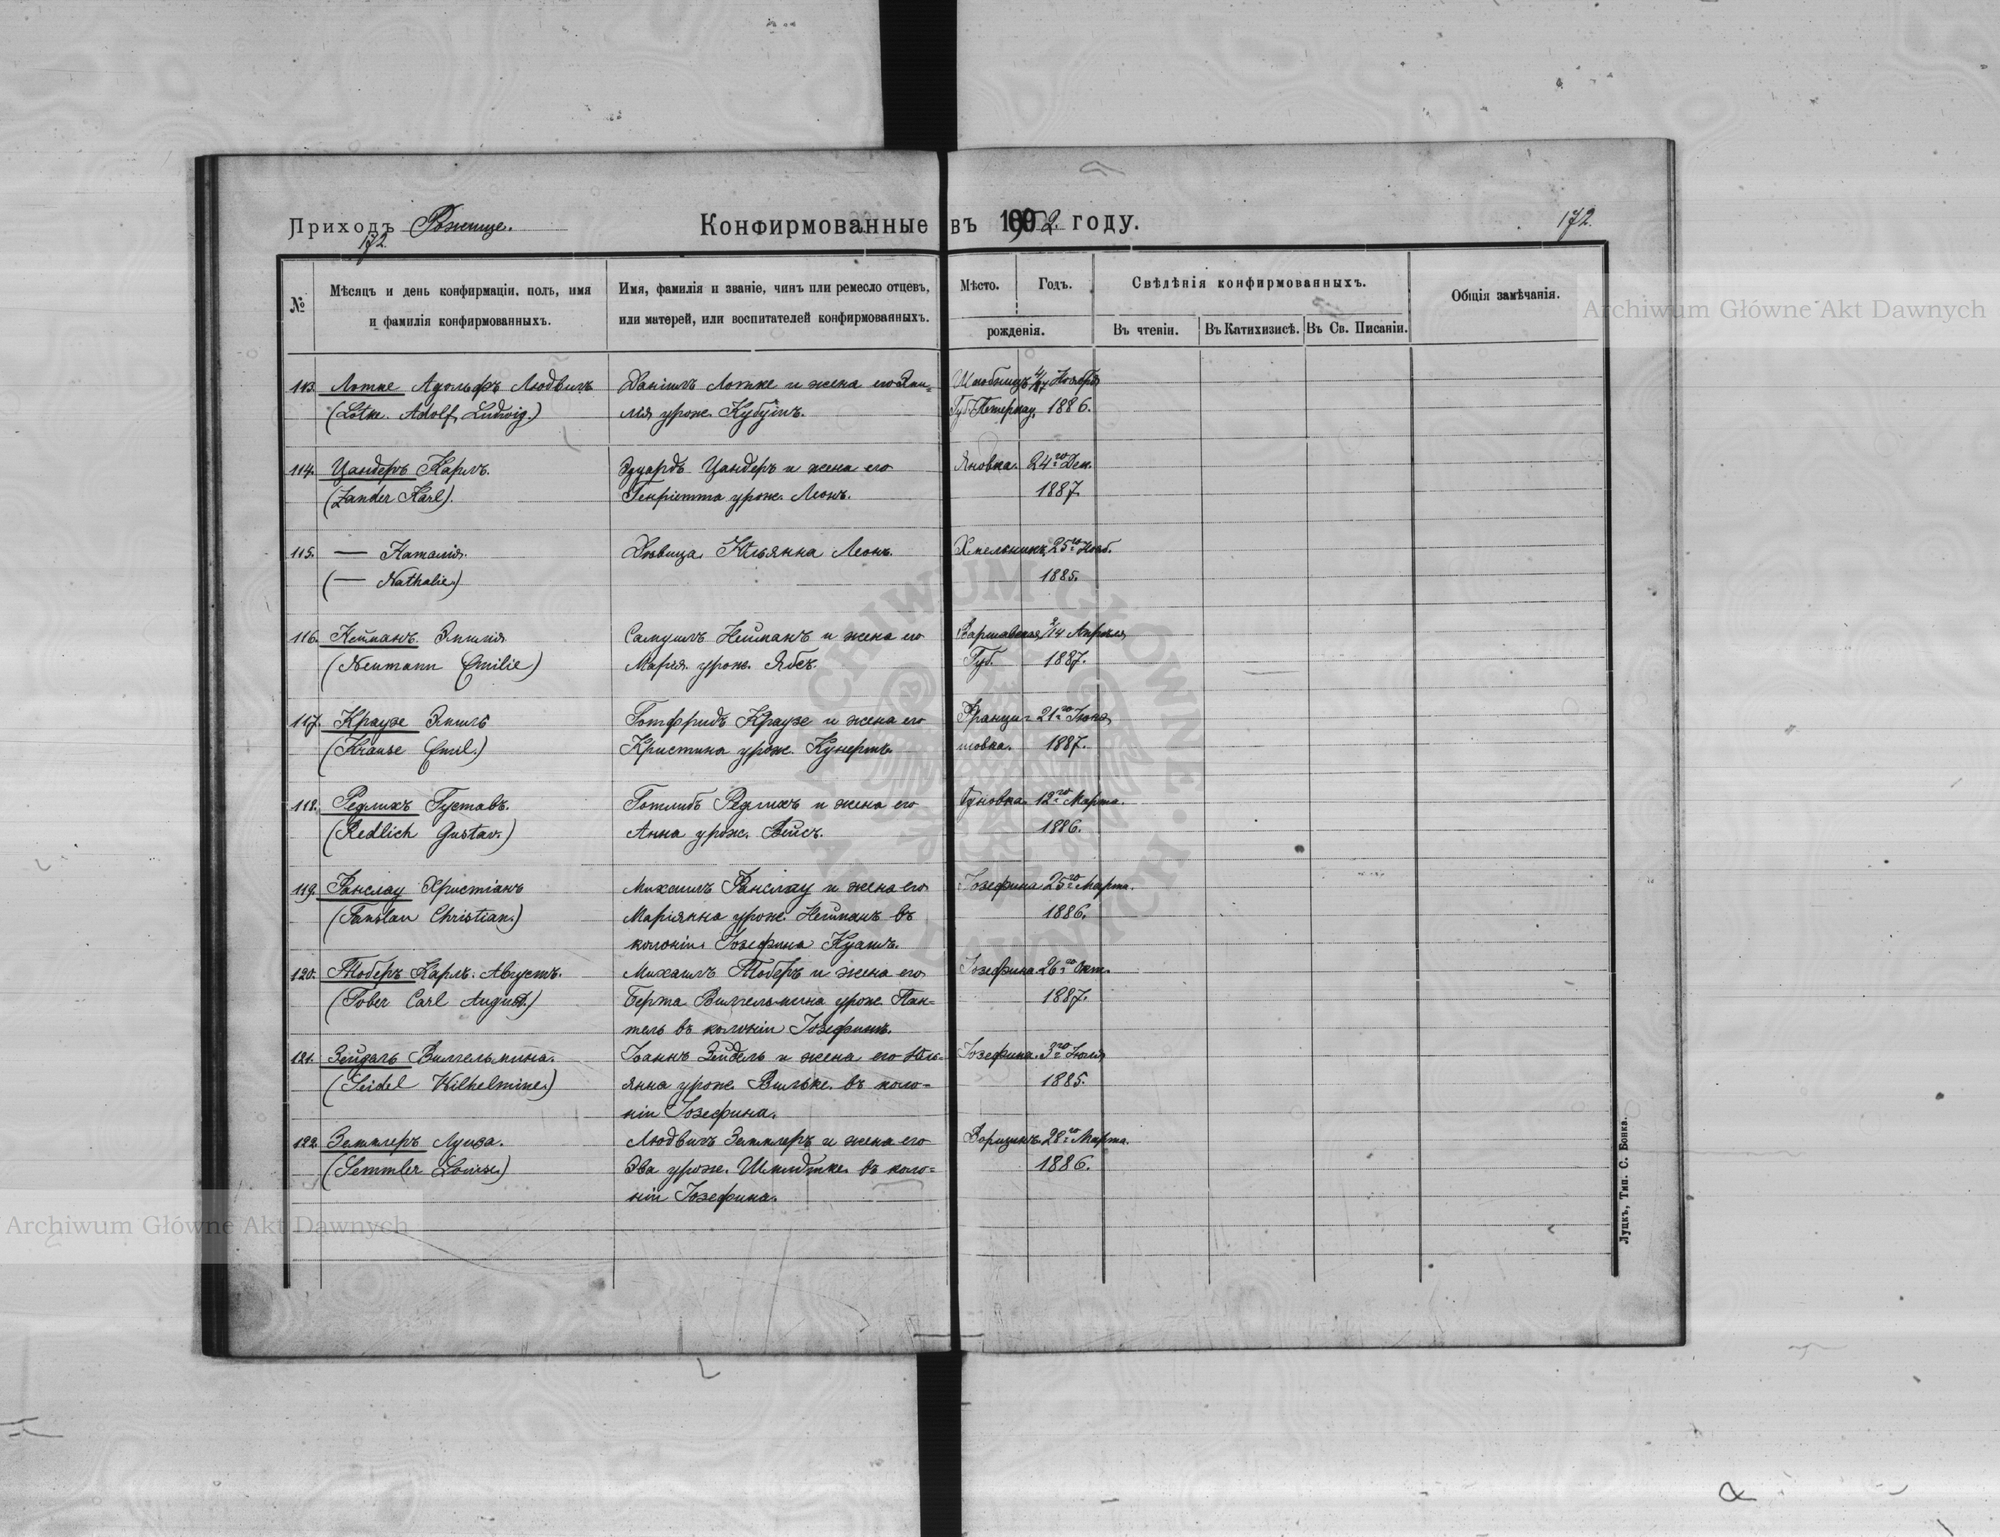 Приходъ Рожище.
172.
Конфирмованные въ 1902 году.
172.
№
Мѣсяцъ и день конфирмаціи, полъ, имя
и фамилія конфирмованныхъ.
Имя, фамилія и званіе, чинъ или ремесло отцевъ,
или матерей, или воспитателей конфирмованныхъ.
Мѣсто.
Годъ.
рожденія.
Свѣдѣнія конфирмованныхъ.
Въ чтеніи.
Въ Катихизисѣ.
Въ Св. Писаніи.
Общія замѣчанія.
113. Лотке Адольфъ Людвигъ Даніилъ Лотке и жена его Эми-
(Lotke Adolf Ludwig.) лія урож. 1886.
114. Цандеръ Карлъ. Эдуардъ Цандеръ и жена его Яновка. 24го Дек.
(Zander Karl). Генріетта урож. Леонъ. 1887.
115. — Наталія. Дѣвица Юльянна Леонъ. 25го Нояб.
(— Nathalie) 1885.
116. Нейманъ Эмилія Самуилъ Нейманъ и жена его Варшавская 2/14 Апрѣля
(Neumann Emilie) Марія урож. Губ. 1887.
117. Краузе Эмиль Готфридъ Краузе и жена его Франци- 21го
(Krause Emil.) Кристина урож. Кунертъ. шовка. 1887.
118. Редлихъ Густавъ. Готлибъ Редлихъ и жена его 12го Марта.
(Redlich Gustav.) Анна урож. Вейсъ. 1886.
119. Фанслау Христіанъ Михаилъ Фанслау и жена его Іозефина 25го Марта.
(Fanslau Christian.) Маріянна урож. Нейманъ въ 1886.
колоніи Іозефина
120. Тоберъ Карлъ Августъ. Михаилъ Тоберъ и жена его Іозефина 26го Окт.
(Tober Carl August.) Берта Вильгельмина урож. Пан- 1887.
тель въ колоніи Іозефинъ.
121. Зейдель Вильгельмина. Іоаннъ Зейдель и жена его Юль- Іозефина. 3го Іюля
(Seidel Wilhelmine.) янна урож. Вильке. въ коло- 1885.
ніи Іозефина.
122. Земмлеръ Луиза. Людвигъ Земмлеръ и жена его 28го Марта.
(Semmler Louise.) Эва урож. Шмидтке. въ коло- 1886.
ніи Іозефина.
Луцкъ, Тип. С. Бонка.
Archiwum Główne Akt Dawnych
Archiwum Główne Akt Dawnych
ARCHIWUM GŁÓWNE AKT DAWNYCH